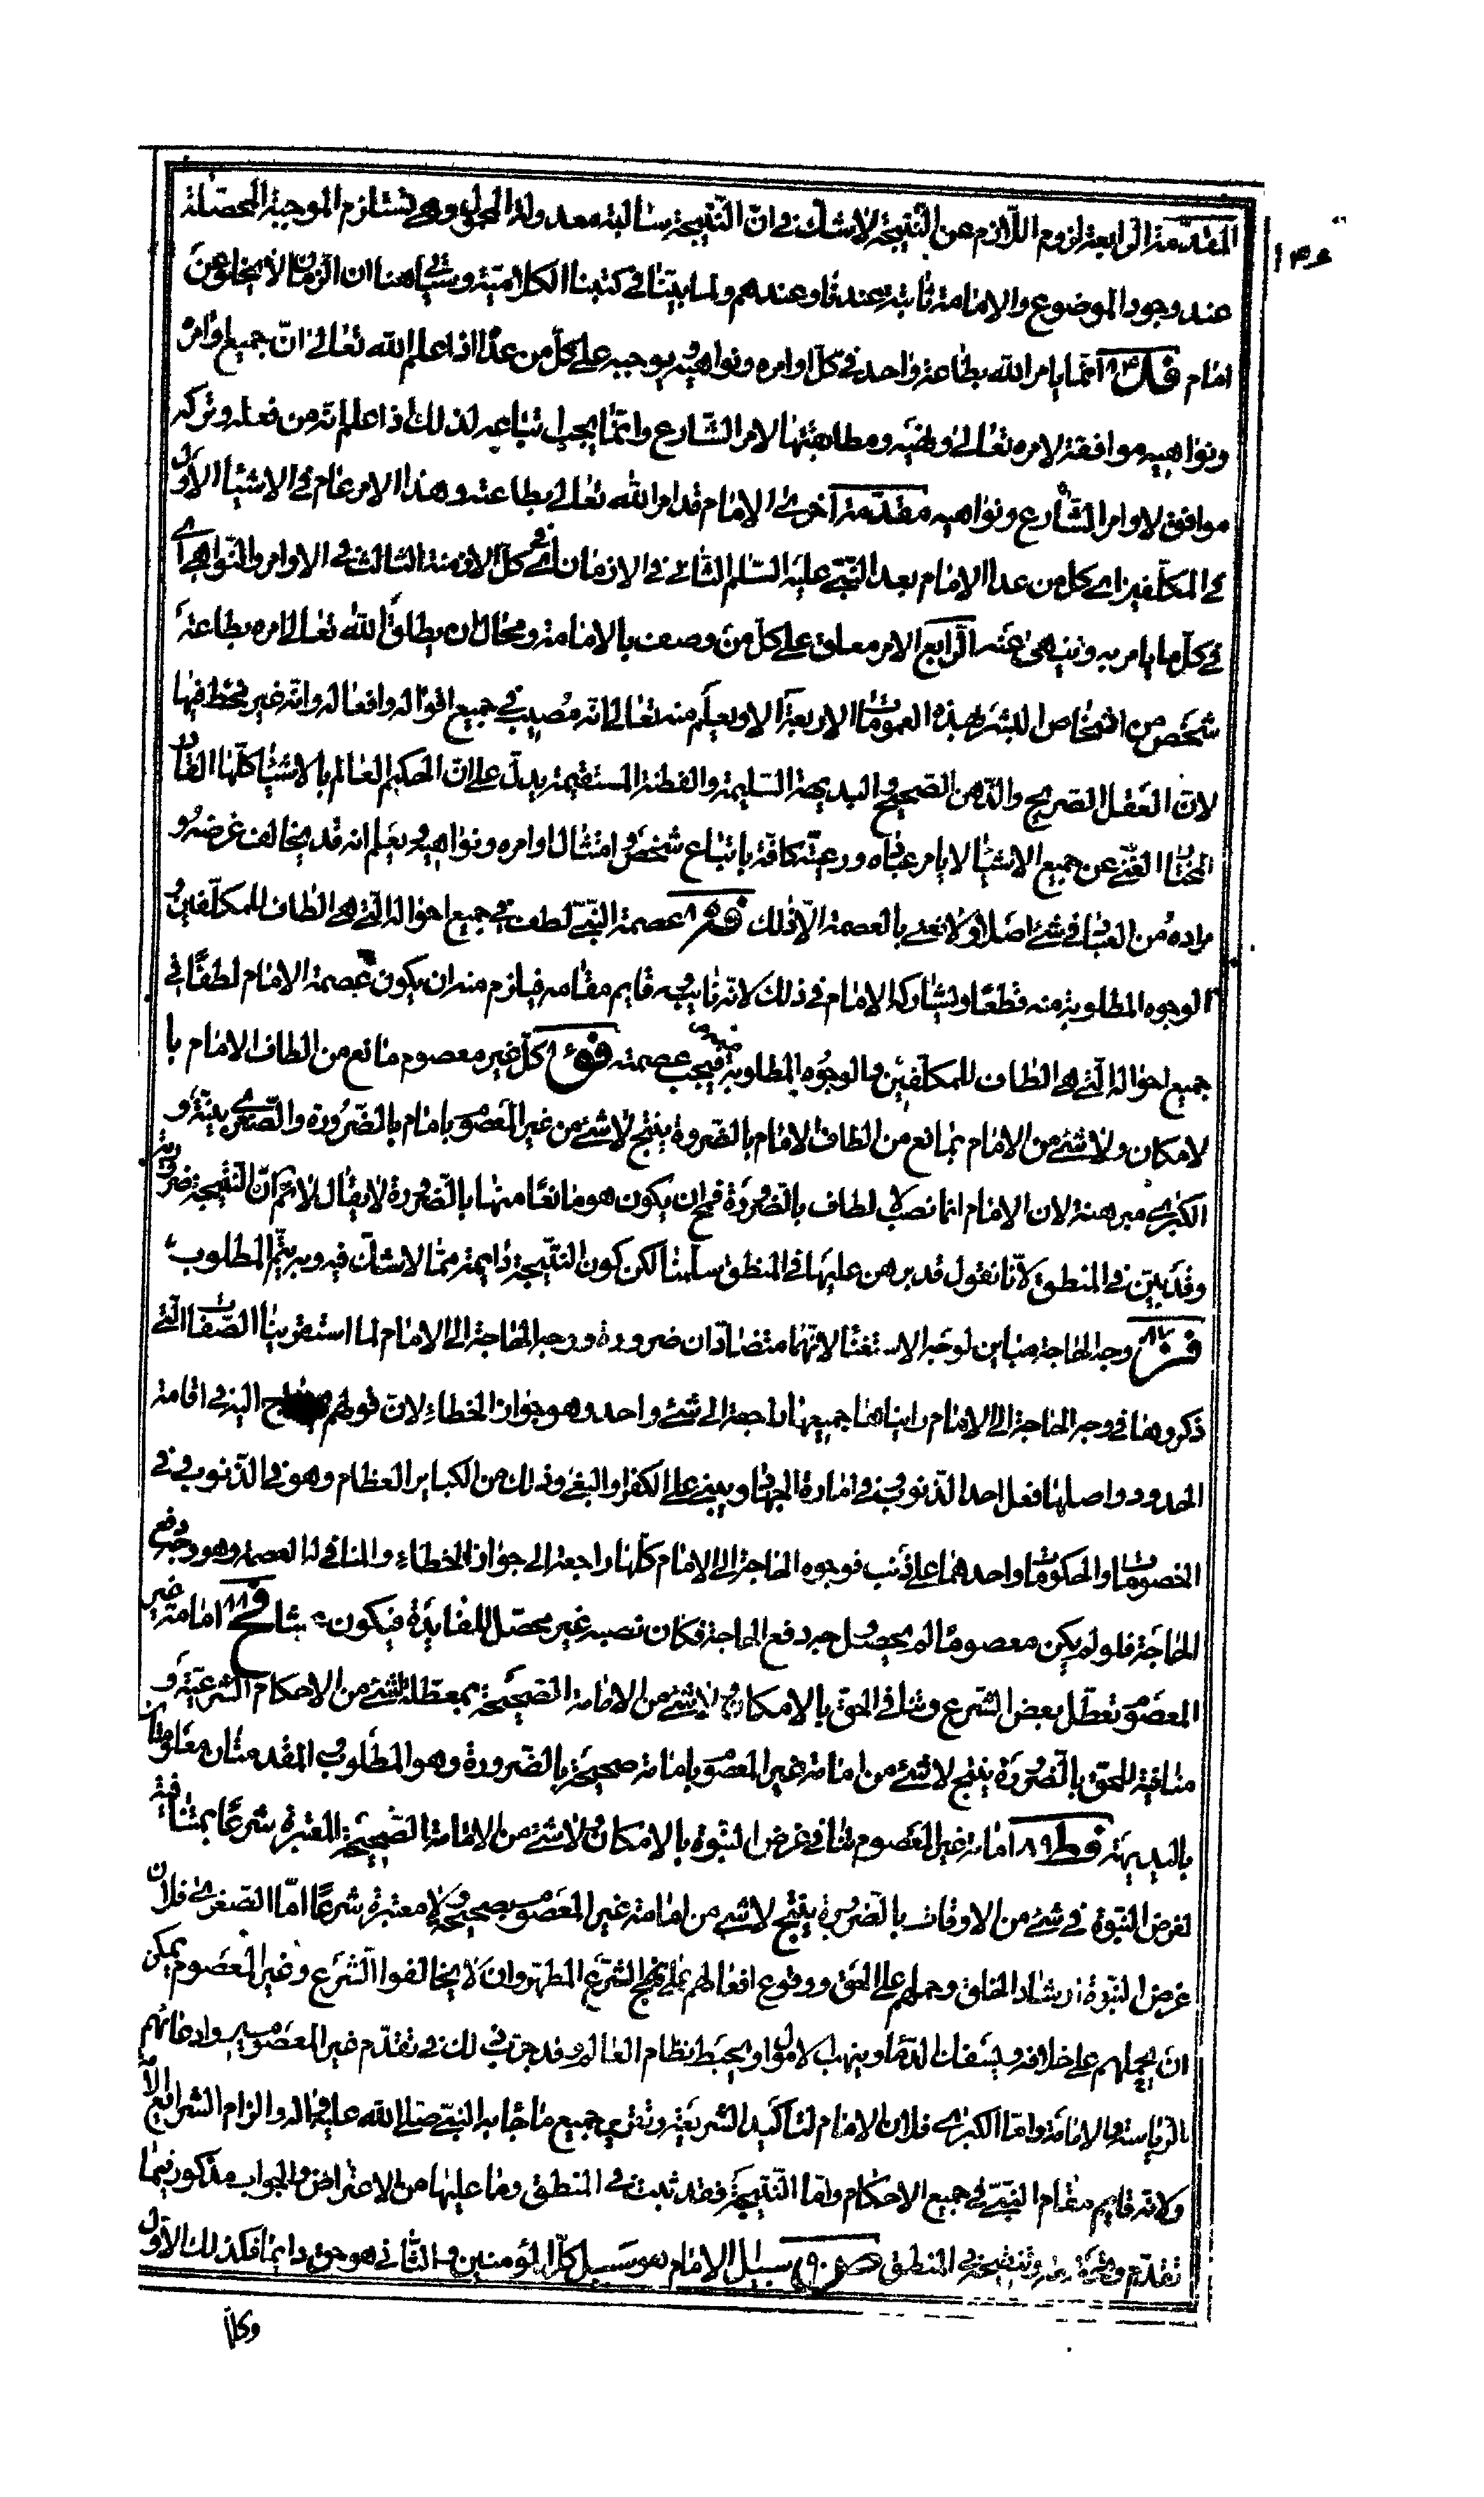 ١٣٤
المقدّمة الرابعة لزوم اللّازم عن النّتيجة لاشكّ في انّ النّتيجة سالبة معدولة المحمول وهي تستلزم الموجبة المحصّلة
عند وجود الموضوع والامامة ثابتة عندنا وعندهم ولما بيّنّا في كتبنا الكلاميّة وسياتي هنا ان الزمان لا يخلو عن
امام فد ٨٤ انّما يامر الله بطاعة واحد في كلّ اوامره ونواهيه ويوجبه على كلّ من عداه اذا علم الله تعالى انّ جميع اوامره
ونواهيه موافقة لامره تعالى ونهيه ومطابقتها لامر الشّارع وانّما يجب اتباعه لذلك اذا علم انّه من فعله وتركه
موافق لاوامر الشارع ونواهيه مقدّمة اخرى الامام قد امر الله تعالى بطاعته وهذا الامر عام في الاشياء الاوّل
في المكلّفين اى كل من عدا الامام بعد النّبيّ عليه السّلم الثّاني في الازمان اى في كلّ الازمنة الثالث في الاوامر والنّواهي اى
في كلّ ما يامر به وينهى عنه الرّابع الامر معلق على كلّ من وصف بالامامة ومحال ان يطلق الله تعالى امره بطاعة
شخص من اشخاص البشر بهذه العمومات الاربعة الا ويعلم منه تعالى انّه مُصيب في جميع اقواله وافعاله وانّه غير مخط فيها
لانّ العقل الصريح والذّهن الصّحيح والبديهة السّليمة والفطنة المستقيمة يدلّ على انّ الحكيم العالم بالاشياء كلّها القادر
المختار الغنيّ عن جميع الاشياء لا يامر عباده ورعيّته كافّة باتباع شخص وامتثال اوامره ونواهيه ويعلم انه قد يخالف غرضه و
مراده من العباد في شئ اصلا ولا نعنى بالعصمة الّا ذلك فه ٨٥ عصمة النّبيّ لطف في جميع احواله الّتي هى الطاف للمكلّفين و
الوجوه المطلوبة منه قطعًا ويشاركه الامام في ذلك لانّه نايبه قايم مقامه فيلزم منه ان يكون عصمة الامام لطفًا في
جميع احواله الّتي هى الطاف للمكلّفين والوجُوه المطلوبة فيجب عصمته فو ٨٦ كلّ غير معصوم مانع من الطاف الامام با
لامكان ولا شئ من الامام بمانع من الطاف الامام بالضّرورة ينتج لا شئ من غير المعصوم بامام بالضّرُورة والصّغرى بيّنة و
الكبرى مبرهنة لان الامام انما نصب للطاف بالضّرُورة فمح ان يكون هو مانعًا منها بالضّرُورة لا يقال لا نم انّ النّتيجة ضرورية
وقد بيّن في المنطق لانّا نقول قد برهن عليها في المنطق سلّمنا لكن كون النّتيجة دايمة ممّا لا شكّ فيه وبه يتمّ المطلوب
فز ٨٧ وجه الحاجة مباين لوجه الاستغناء لانّهما متضادّان ضرورة ووجه الحاجة الى الامام لما استقرينا الصّفات الّتي
ذكروها في وجه الحاجة الى الامام رايناها جميعها راجعة الى شئ واحد وهو جواز الخطاء لان قولهم يحتاج اليه في اقامة
الحدود واصلها فعل احد الذّنوب وفى امارة الجهاد ويبنى على الكفر او البغى وذلك من الكباير العظام وهو في الذّنوب وفى
الخصومات والحكومات واحدهما على ذنب فوجوه الحاجة الى الامام كلّها راجعة الى جواز الخطاء والمنافى لها العصمة وهو وجه دفع
الحاجة فلو لم يكن معصومًا لم يحصُل وجه دفع الحاجة فكان نصبه غير محصّل للفايدة فيكون عبثا فح ٨٨ امامة غير
المعصوم تعطّل بعض الشرع وتنافى الحق بالامكان ولا شئ من الامامة الصّحيحة بمعطّلة لشئ من الاحكام الشّرعيّة و
منافية للحق بالضّرُورة ينتج لا شئ من امامة غير المعصوم بامامة صحيحة بالضّرورة وهو المطلوب المقدمتان معلومتان
بالبديهة فط ٨٩ امامة غير المعصوم تنافى غرض النبّوة بالامكان ولا شئ من الامامة الصّحيحة المعتبرة شرعًا بمنافية
لغرض النبّوة في شئ من الاوقات بالضّرُورة ينتج لا شئ من امامة غير المعصوم بصحيحة ولا معتبرة شرعًا امّا الصّغرى فلانّ
غرض النبّوة ارشاد الخلق وحملهم على الحق ووقوع افعالهم على نهج الشرّع المطهّر وان لا يخالفوا الشّرع وغير المعصوم يمكن
ان يحملهم على خلافه ويسفك الدّماء وينهب الاموال ويخبط نظام العالم وقد جرّب ذلك في تقدّم غير المعصومين وادعائهم
الرّياسة والامامة وامّا الكبرى فلان الامام لتاكيد الشريعة وتقرير جميع ما جا به النبّي صلى الله عليه واله والزام الشرايع الامّة
ولانّه قايم مقام النبّي في جميع الاحكام وامّا النّتيجة فقد ثبت في المنطق وما عليها من الاعتراض والجواب مذكور فيما
تقدّم وفى المنطق ص ٩٠ سبيل الامام هو سبيل كلّ المؤمنين والثّانى هو حق دايمًا فكذلك الاوّل
وكلّ